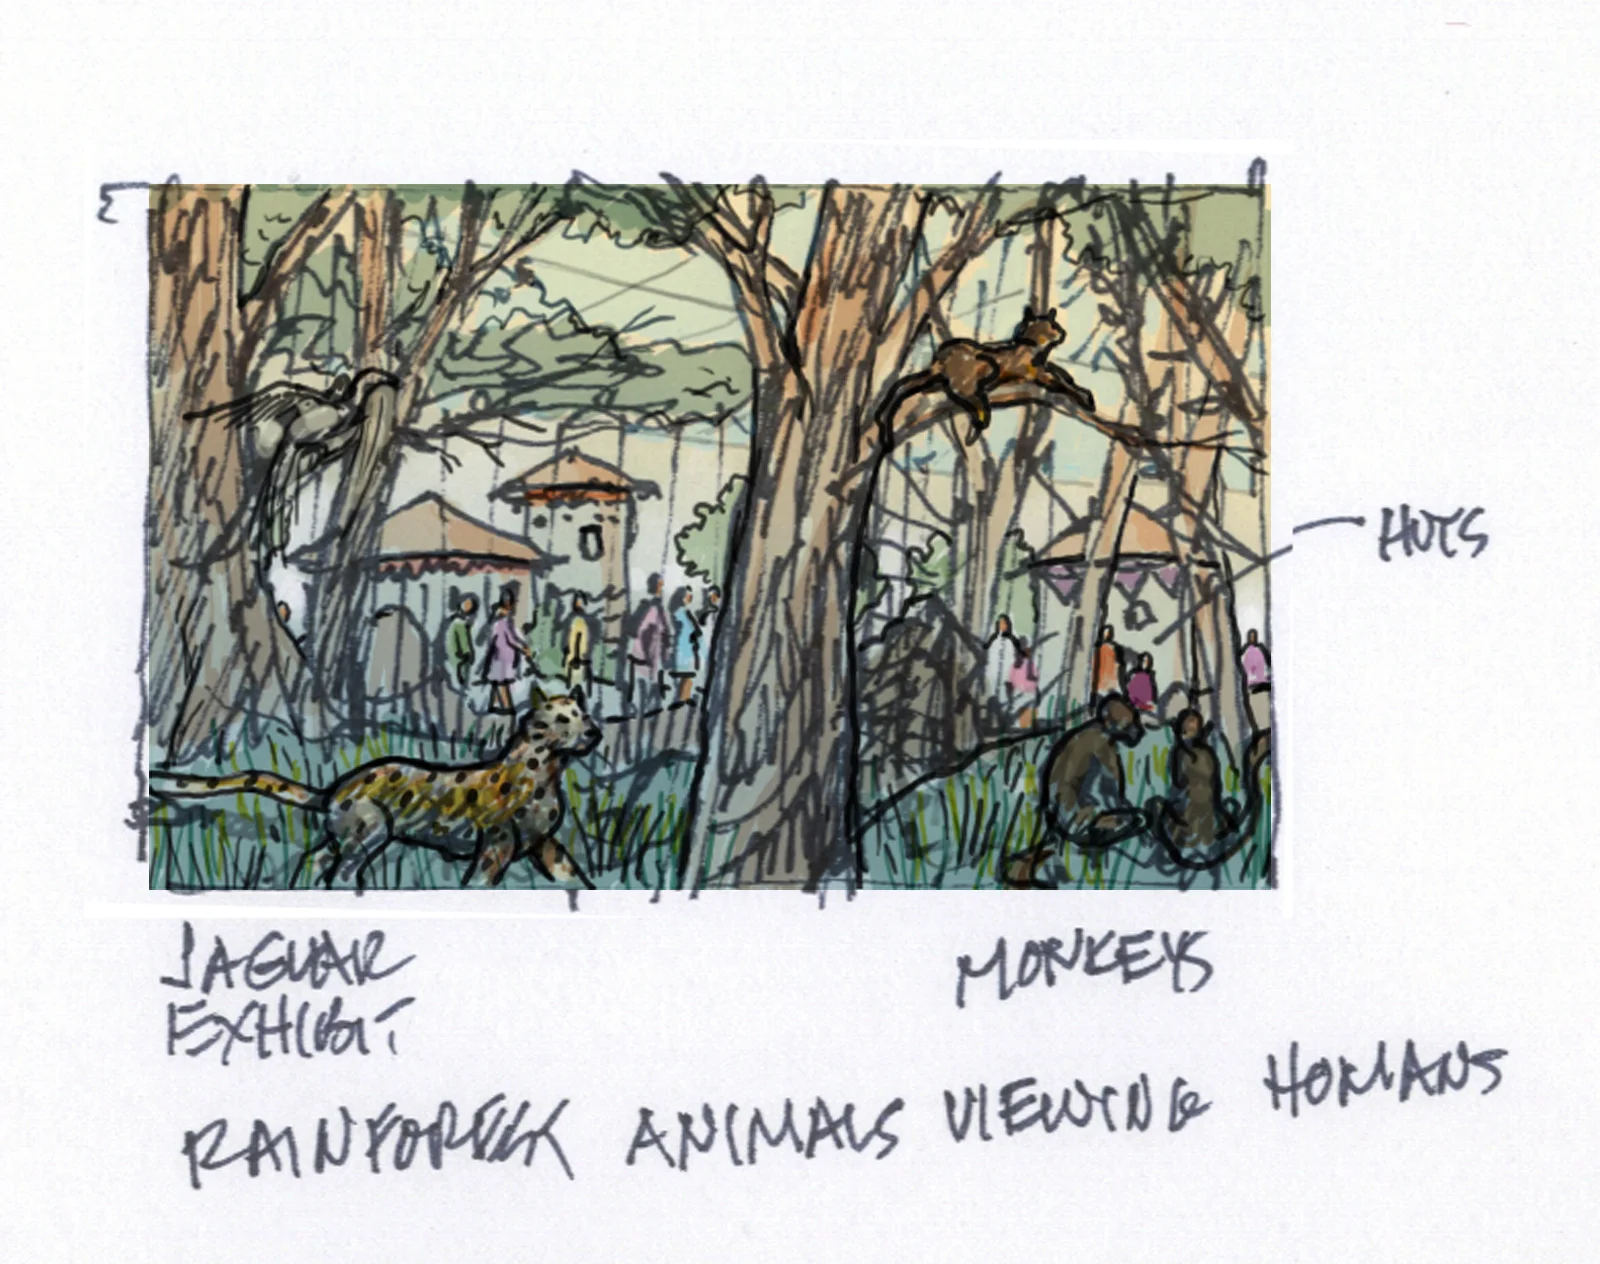 HUTS
JAGUAR
EXHIBIT
MONKEYS
RAINFOREST ANIMALS VIEWING HUMANS